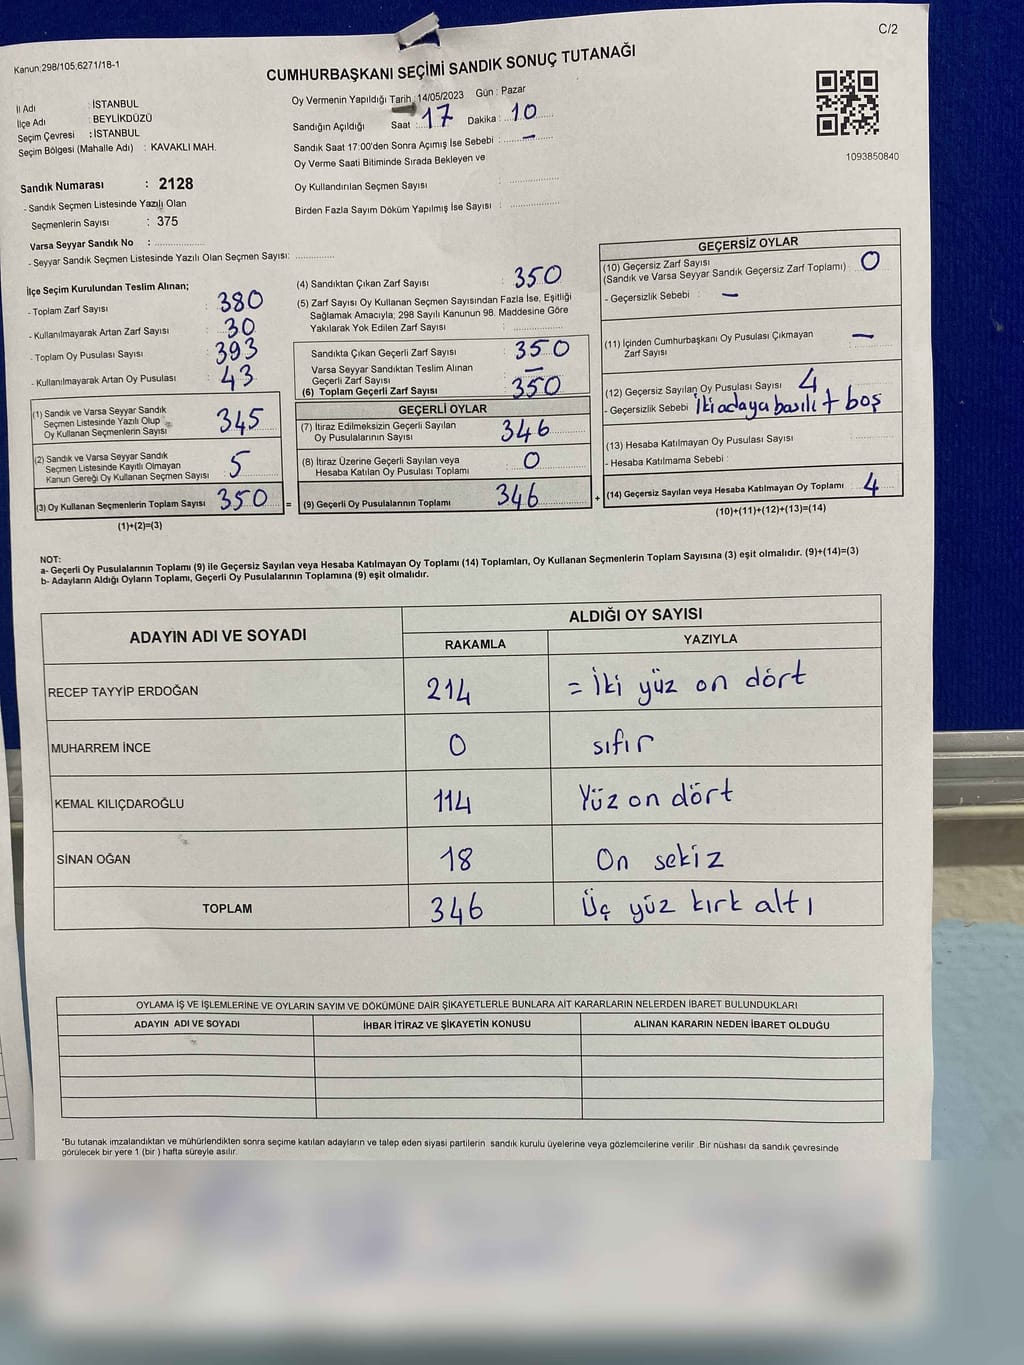 C/2
Kanun:298/105,6271/18-1
CUMHURBAŞKANI SEÇİMİ SANDIK SONUÇ TUTANAĞI
İl Adı : İSTANBUL
İlçe Adı : BEYLİKDÜZÜ
Seçim Çevresi : İSTANBUL
Seçim Bölgesi (Mahalle Adı) : KAVAKLI MAH.
Oy Vermenin Yapıldığı Tarih : 14/05/2023 Gün : Pazar
Sandığın Açıldığı Saat : 17 Dakika : 10
Sandık Saat 17:00'den Sonra Açımış İse Sebebi : —
Oy Verme Saati Bitiminde Sırada Bekleyen ve
Oy Kullandırılan Seçmen Sayısı :
Birden Fazla Sayım Döküm Yapılmış İse Sayısı :
1093850840
Sandık Numarası : 2128
- Sandık Seçmen Listesinde Yazılı Olan
Seçmenlerin Sayısı : 375
Varsa Seyyar Sandık No :
- Seyyar Sandık Seçmen Listesinde Yazılı Olan Seçmen Sayısı:
İlçe Seçim Kurulundan Teslim Alınan;
- Toplam Zarf Sayısı : 380
- Kullanılmayarak Artan Zarf Sayısı : 30
- Toplam Oy Pusulası Sayısı : 393
- Kullanılmayarak Artan Oy Pusulası : 43
(1) Sandık ve Varsa Seyyar Sandık
Seçmen Listesinde Yazılı Olup
Oy Kullanan Seçmenlerin Sayısı : 345
(2) Sandık ve Varsa Seyyar Sandık
Seçmen Listesinde Kayıtlı Olmayan
Kanun Gereği Oy Kullanan Seçmen Sayısı : 5
(3) Oy Kullanan Seçmenlerin Toplam Sayısı : 350 =
(1)+(2)=(3)
(4) Sandıktan Çıkan Zarf Sayısı : 350
(5) Zarf Sayısı Oy Kullanan Seçmen Sayısından Fazla İse, Eşitliği
Sağlamak Amacıyla; 298 Sayılı Kanunun 98. Maddesine Göre
Yakılarak Yok Edilen Zarf Sayısı :
Sandıkta Çıkan Geçerli Zarf Sayısı : 350
Varsa Seyyar Sandıktan Teslim Alınan
Geçerli Zarf Sayısı : —
(6) Toplam Geçerli Zarf Sayısı : 350
GEÇERLİ OYLAR
(7) İtiraz Edilmeksizin Geçerli Sayılan
Oy Pusulalarının Sayısı : 346
(8) İtiraz Üzerine Geçerli Sayılan veya
Hesaba Katılan Oy Pusulası Toplamı : 0
(9) Geçerli Oy Pusulalarının Toplamı : 346 +
GEÇERSİZ OYLAR
(10) Geçersiz Zarf Sayısı
(Sandık ve Varsa Seyyar Sandık Geçersiz Zarf Toplamı) : 0
- Geçersizlik Sebebi : —
(11) İçinden Cumhurbaşkanı Oy Pusulası Çıkmayan
Zarf Sayısı : —
(12) Geçersiz Sayılan Oy Pusulası Sayısı : 4
- Geçersizlik Sebebi : İki adaya basılı + boş
(13) Hesaba Katılmayan Oy Pusulası Sayısı :
- Hesaba Katılmama Sebebi :
(14) Geçersiz Sayılan veya Hesaba Katılmayan Oy Toplamı : 4
(10)+(11)+(12)+(13)=(14)
NOT:
a- Geçerli Oy Pusulalarının Toplamı (9) ile Geçersiz Sayılan veya Hesaba Katılmayan Oy Toplamı (14) Toplamları, Oy Kullanan Seçmenlerin Toplam Sayısına (3) eşit olmalıdır. (9)+(14)=(3)
b- Adayların Aldığı Oyların Toplamı, Geçerli Oy Pusulalarının Toplamına (9) eşit olmalıdır.
ADAYIN ADI VE SOYADI ALDIĞI OY SAYISI
RAKAMLA YAZIYLA
RECEP TAYYİP ERDOĞAN 214 = İki yüz on dört
MUHARREM İNCE 0 sıfır
KEMAL KILIÇDAROĞLU 114 Yüz on dört
SİNAN OĞAN 18 On sekiz
TOPLAM 346 Üç yüz kırk altı
OYLAMA İŞ VE İŞLEMLERİNE VE OYLARIN SAYIM VE DÖKÜMÜNE DAİR ŞİKAYETLERLE BUNLARA AİT KARARLARIN NELERDEN İBARET BULUNDUKLARI
ADAYIN ADI VE SOYADI İHBAR İTİRAZ VE ŞİKAYETİN KONUSU ALINAN KARARIN NEDEN İBARET OLDUĞU
*Bu tutanak imzalandıktan ve mühürlendikten sonra seçime katılan adayların ve talep eden siyasi partilerin sandık kurulu üyelerine veya gözlemcilerine verilir. Bir nüshası da sandık çevresinde
görülecek bir yere 1 (bir) hafta süreyle asılır.